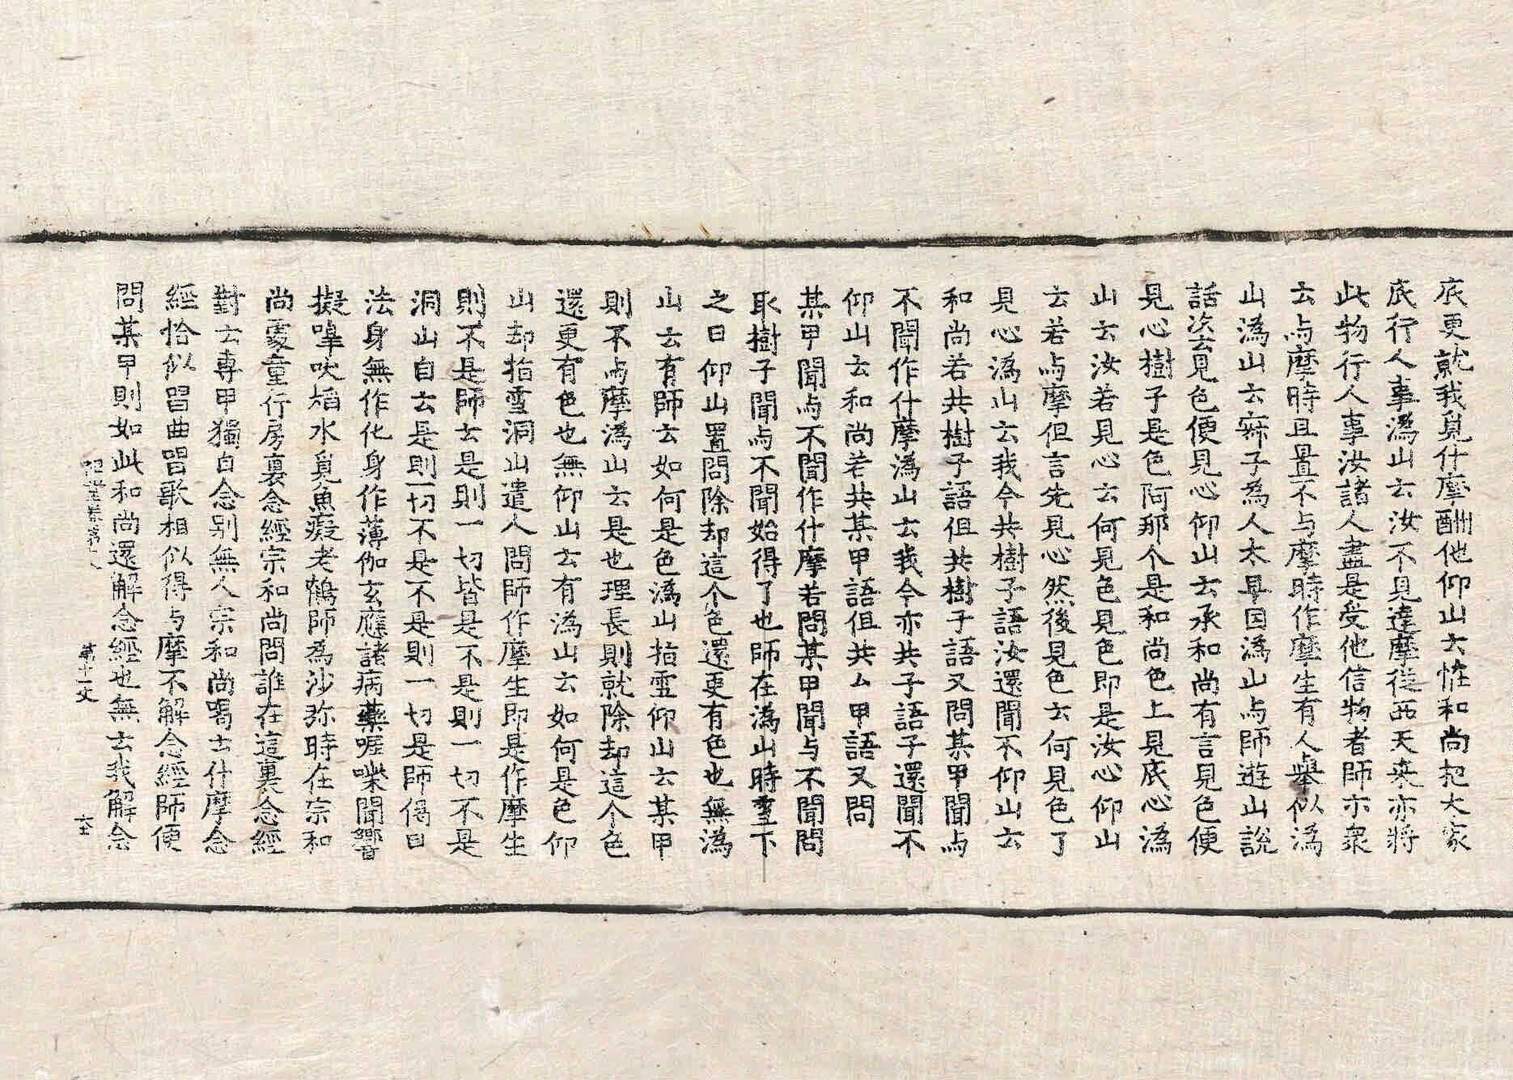 底更就我覓什摩酬他仰山云惟和尚把大家
底行人事溈山云汝不見達摩從西天來亦將
此物行人事汝諸人盡是受他信物者師亦衆
云与摩時且置不与摩時作摩生有人舉似溈
山溈山云寐子為人太早因溈山与師遊山說
話次云見色便見心仰山云承和尚有言見色便
見心樹子是色阿那个是和尚色上見底心溈
山云汝若見心云何見色見色即是汝心仰山
云若与摩但言先見心然後見色云何見色了
見心溈山云我今共樹子語汝還聞不仰山云
和尚若共樹子語但共樹子語又問某甲聞与
不聞作什摩溈山云我今亦共子語子還聞不
仰山云和尚若共某甲語但共ム甲語又問
某甲聞与不聞作什摩若問某甲聞与不聞問
取樹子聞与不聞始得了也師在溈山時雪下
之日仰山置問除却這个色還更有色也無溈
山云有師云如何是色溈山指雪仰山云某甲
則不与摩溈山云是也理長則就除却這个色
還更有色也無仰山云有溈山云如何是色仰
山却指雪洞山遣人問師作摩生即是作摩生
則不是師云是則一切皆是不是則一切不是
洞山自云是則一切不是不是則一切是師偈曰
法身無作化身作薄伽玄應諸病藥哩㗚聞響
擬嘷吠焰水覓魚癡老鶴師為沙弥時在宗和
尚處童行房裏念經宗和尚問誰在這裏念經
對云專甲獨自念別無人宗和尚喝云什摩念
經恰似唱曲唱歌相似得与摩不解念經師便
問某甲則如此和尚還解念經也無云我解念
第十丈